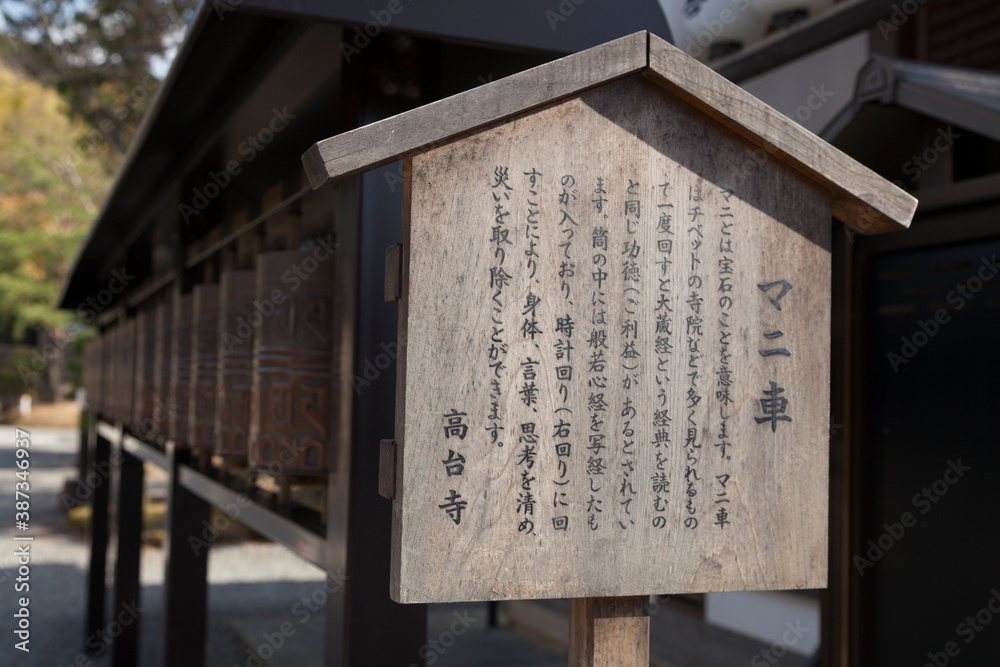 マニ車
マニとは宝石のことを意味します。マニ車
はチベットの寺院などで多く見られるもの
で一度回すと大蔵経という経典を読むの
と同じ功徳（ご利益）が あるとされてい
ます。筒の中には般若心経を写経したも
のが入っており、時計回り（右回り）に回
すことにより、身体、言葉、思考を清め、
災いを取り除くことができます。
高台寺
Adobe Stock | #387346937